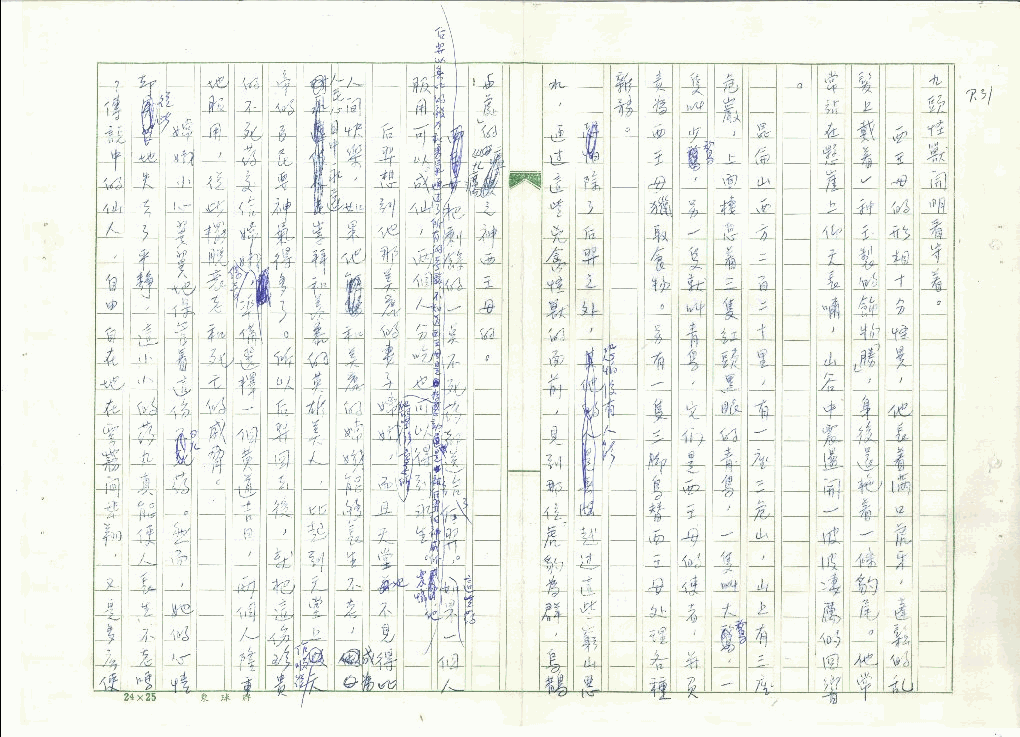 P.31
九頭怪獸開明看守着。
西王母的形相十分怪異，他長着滿口虎牙，蓬鬆的亂
髮上戴着一種玉製的飾物「勝」，身後還拖着一條豹尾。他常
常站在懸崖上仰天長嘯，山谷中震盪開一波波淒厲的回響
。
崑崙山西方二百二十里，有一座三危山，山上有三座
危巖，上面棲息着三隻紅頭黑眼的青鳥，一隻叫大鵹，一
隻叫少鵹，另一隻就叫青鳥，它們是西王母的使者，並負
責為西王母獵取食物。另有一隻三腳鳥替西王母處理各種
雜務。
除了后羿之外，恐怕沒有人能越過這些窮山惡
水，通過這些兇禽怪獸的面前，見到那位虎豹為群，烏鵲
與處的之神西王母的。
把剩餘的一點不死藥都送給后羿。如果一個人
服用可以成仙，兩個人分吃也可以得到永生。
后羿想到他那美麗的妻子嫦娥，而且天堂也不見得比
人間快樂，如果他能和美麗的嫦娥能夠長生不老，成為
人世豈稱和美麗的英雄美人，比起到天堂上
帝的臣民要神氣得多了。所以后羿回去後，就把這份珍貴
的不死藥交給嫦娥，準備選擇一個黃道吉日，兩個人隆重
地服用，從此擺脫衰老和死亡的威脅。
嫦娥小心翼翼地保管着這份藥。然而，她的心情
却從此失去了平靜，這小小的藥丸真能使人長生不老嗎
？傳說中的仙人，自由自在地在雲霧間飛翔，又是多麼使
24×25